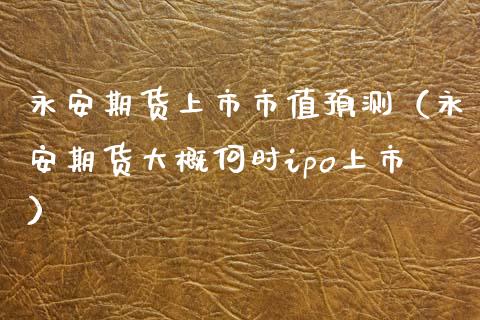 永安期货上市市值预测（永
安期货大概何时ipo上市
）